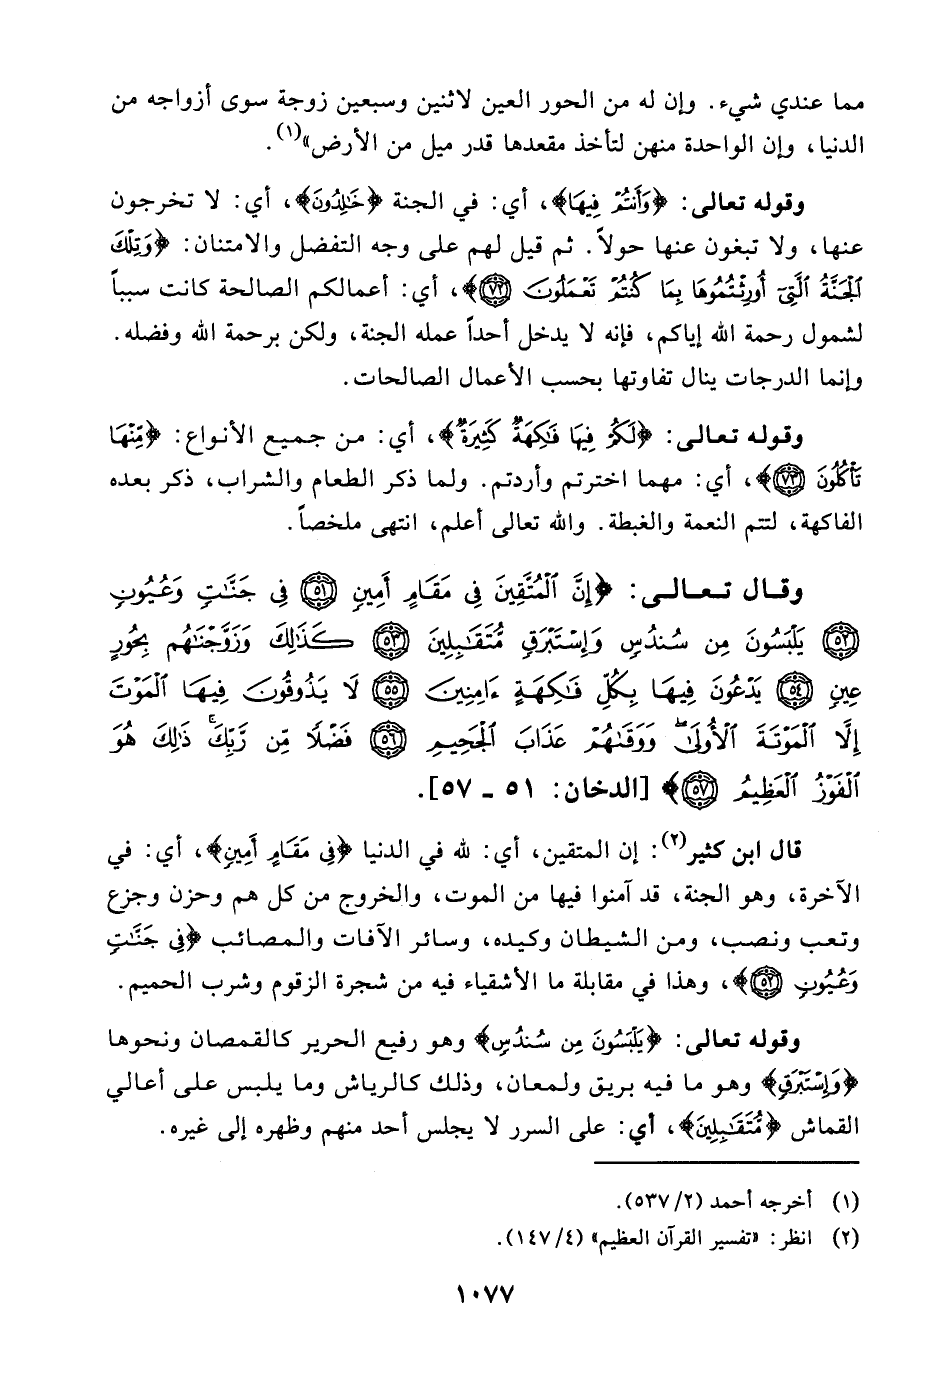 مما عندي شيء. وإن له من الحور العين لاثنين وسبعين زوجة سوى أزواجه من
الدنيا، وإن الواحدة منهن لتأخذ مقعدها قدر ميل من الأرض»(١).
وقوله تعالى: ﴿وَأَنتُمْ فِيهَا﴾، أي: في الجنة ﴿خَٰلِدُونَ﴾، أي: لا تخرجون
عنها، ولا تبغون عنها حولاً. ثم قيل لهم على وجه التفضل والامتنان: ﴿وَتِلْكَ
ٱلْجَنَّةُ ٱلَّتِىٓ أُورِثْتُمُوهَا بِمَا كُنتُمْ تَعْمَلُونَ ﴿٧٢﴾﴾، أي: أعمالكم الصالحة كانت سبباً
لشمول رحمة الله إياكم، فإنه لا يدخل أحداً عمله الجنة، ولكن برحمة الله وفضله.
وإنما الدرجات ينال تفاوتها بحسب الأعمال الصالحات.
وقوله تعالى: ﴿لَكُمْ فِيهَا فَٰكِهَةٌ كَثِيرَةٌ﴾، أي: من جميع الأنواع: ﴿مِّنْهَا
تَأْكُلُونَ ﴿٧٣﴾﴾، أي: مهما اخترتم وأردتم. ولما ذكر الطعام والشراب، ذكر بعده
الفاكهة، لتتم النعمة والغبطة. والله تعالى أعلم، انتهى ملخصاً.
وقال تعالى: ﴿إِنَّ ٱلْمُتَّقِينَ فِى مَقَامٍ أَمِينٍ ﴿٥١﴾ فِى جَنَّٰتٍ وَعُيُونٍ
﴿٥٢﴾ يَلْبَسُونَ مِن سُندُسٍ وَإِسْتَبْرَقٍ مُّتَقَٰبِلِينَ ﴿٥٣﴾ كَذَٰلِكَ وَزَوَّجْنَٰهُم بِحُورٍ
عِينٍ ﴿٥٤﴾ يَدْعُونَ فِيهَا بِكُلِّ فَٰكِهَةٍ ءَامِنِينَ ﴿٥٥﴾ لَا يَذُوقُونَ فِيهَا ٱلْمَوْتَ
إِلَّا ٱلْمَوْتَةَ ٱلْأُولَىٰ ۖ وَوَقَىٰهُمْ عَذَابَ ٱلْجَحِيمِ ﴿٥٦﴾ فَضْلًا مِّن رَّبِّكَ ۚ ذَٰلِكَ هُوَ
ٱلْفَوْزُ ٱلْعَظِيمُ ﴿٥٧﴾﴾ [الدخان: ٥١ ـ ٥٧].
قال ابن كثير(٢): إن المتقين، أي: لله في الدنيا ﴿فِى مَقَامٍ أَمِينٍ﴾، أي: في
الآخرة، وهو الجنة، قد آمنوا فيها من الموت، والخروج من كل هم وحزن وجزع
وتعب ونصب، ومن الشيطان وكيده، وسائر الآفات والمصائب ﴿فِى جَنَّٰتٍ
وَعُيُونٍ ﴿٥٢﴾﴾، وهذا في مقابلة ما الأشقياء فيه من شجرة الزقوم وشرب الحميم.
وقوله تعالى: ﴿يَلْبَسُونَ مِن سُندُسٍ﴾ وهو رفيع الحرير كالقمصان ونحوها
﴿وَإِسْتَبْرَقٍ﴾ وهو ما فيه بريق ولمعان، وذلك كالرياش وما يلبس على أعالي
القماش ﴿مُّتَقَٰبِلِينَ﴾، أي: على السرر لا يجلس أحد منهم وظهره إلى غيره.
(١) أخرجه أحمد (٥٣٧/٢).
(٢) انظر: «تفسير القرآن العظيم» (١٤٧/٤).
١٠٧٧